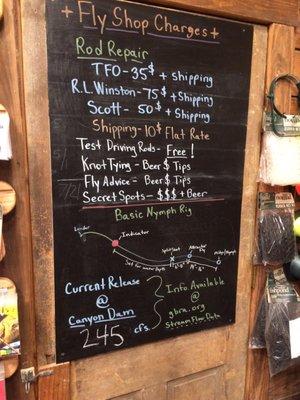 + Fly Shop Charges +
Rod Repair
TFO - 35$ + Shipping
R.L. Winston - 75$ + Shipping
Scott - 50$ + Shipping
Shipping - 10$ Flat Rate
Test Driving Rods - Free!
Knot Tying - Beer $ Tips
Fly Advice - Beer $ Tips
Secret Spots - $$$ + Beer
Basic Nymph Rig
Leader
Indicator
Split Shot
Set for water depth
Current Release
@
Canyon Dam
245 cfs.
Info. Available
@
gbra.org
Stream Flow Data
fishpond